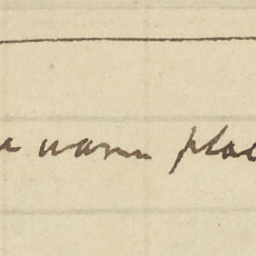 a warm plac